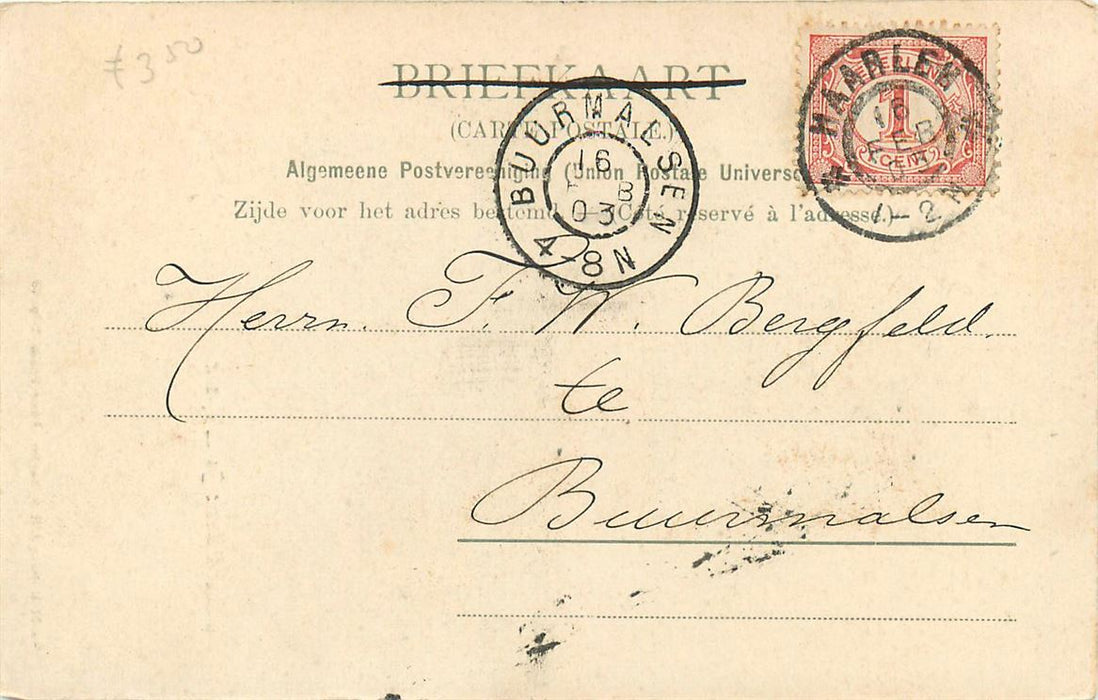 ƒ 3 50
BRIEFKAART
(CARTE POSTALE.)
Algemeene Postvereeniging (Union Postale Universelle)
Zijde voor het adres bestemd. — (Côté réservé à l'adresse.)
NEDERLAND
1
CENT
HAARLEM
16
FEB
1-2 N
BUURMALSEN
16
FEB
03
4-8 N
Herrn. F. W. Bergfeld.
te
Buurmalsen